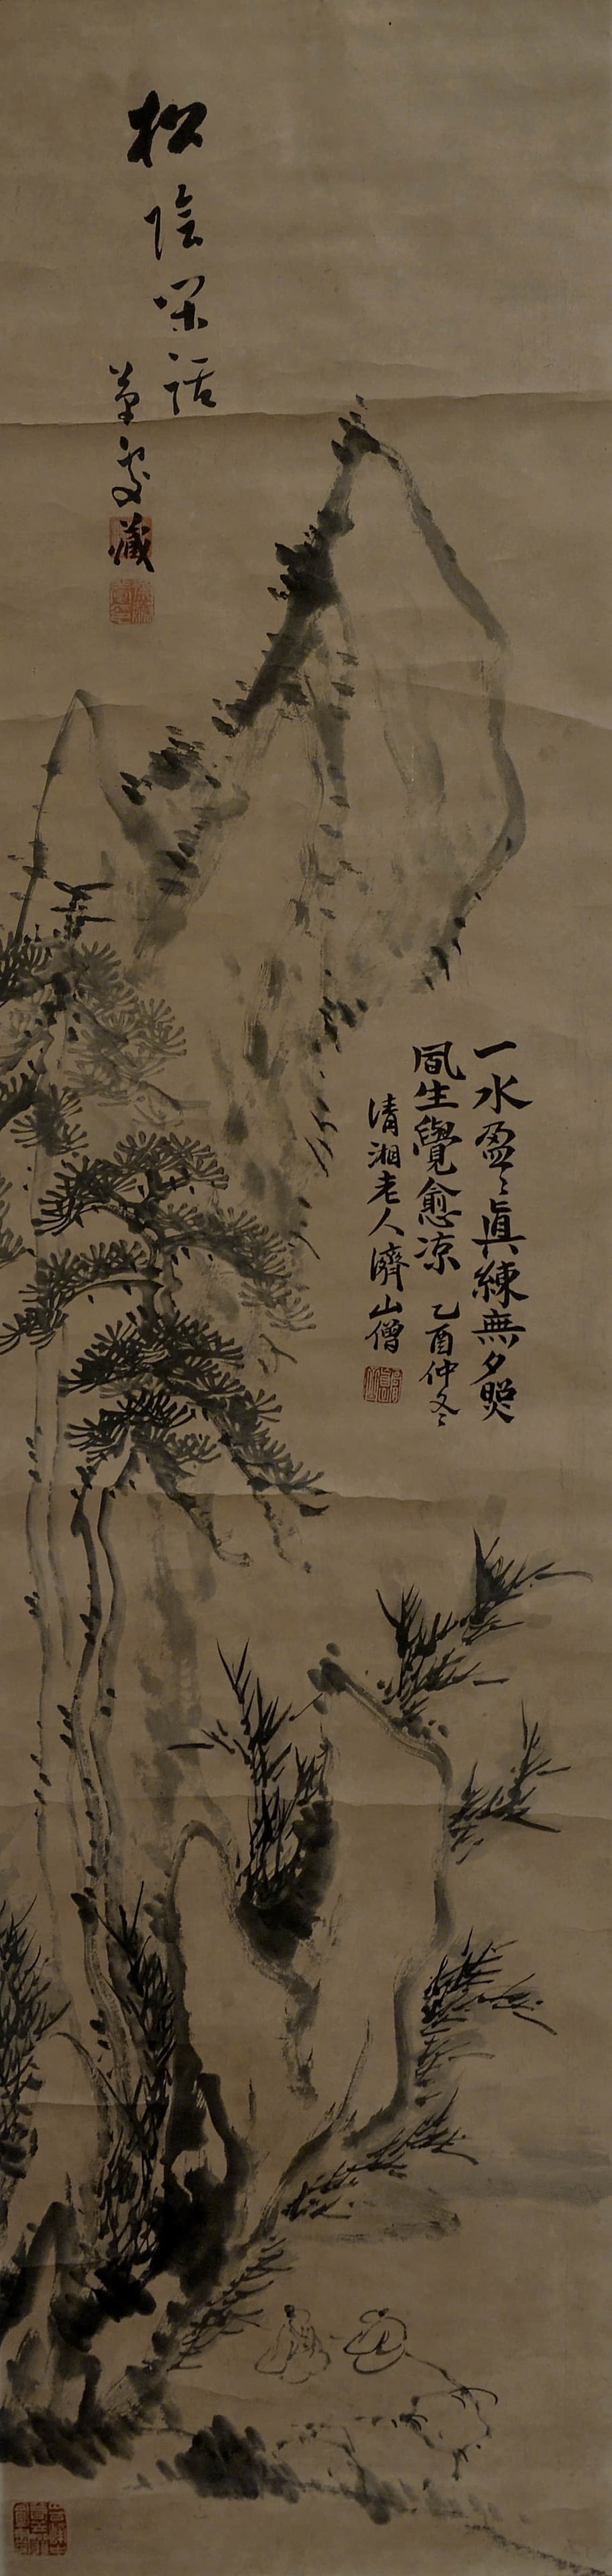 松陰閑話
草安藏
一水盈〻真練無夕照
風生覺愈涼 乙酉仲冬
清湘老人濟山僧